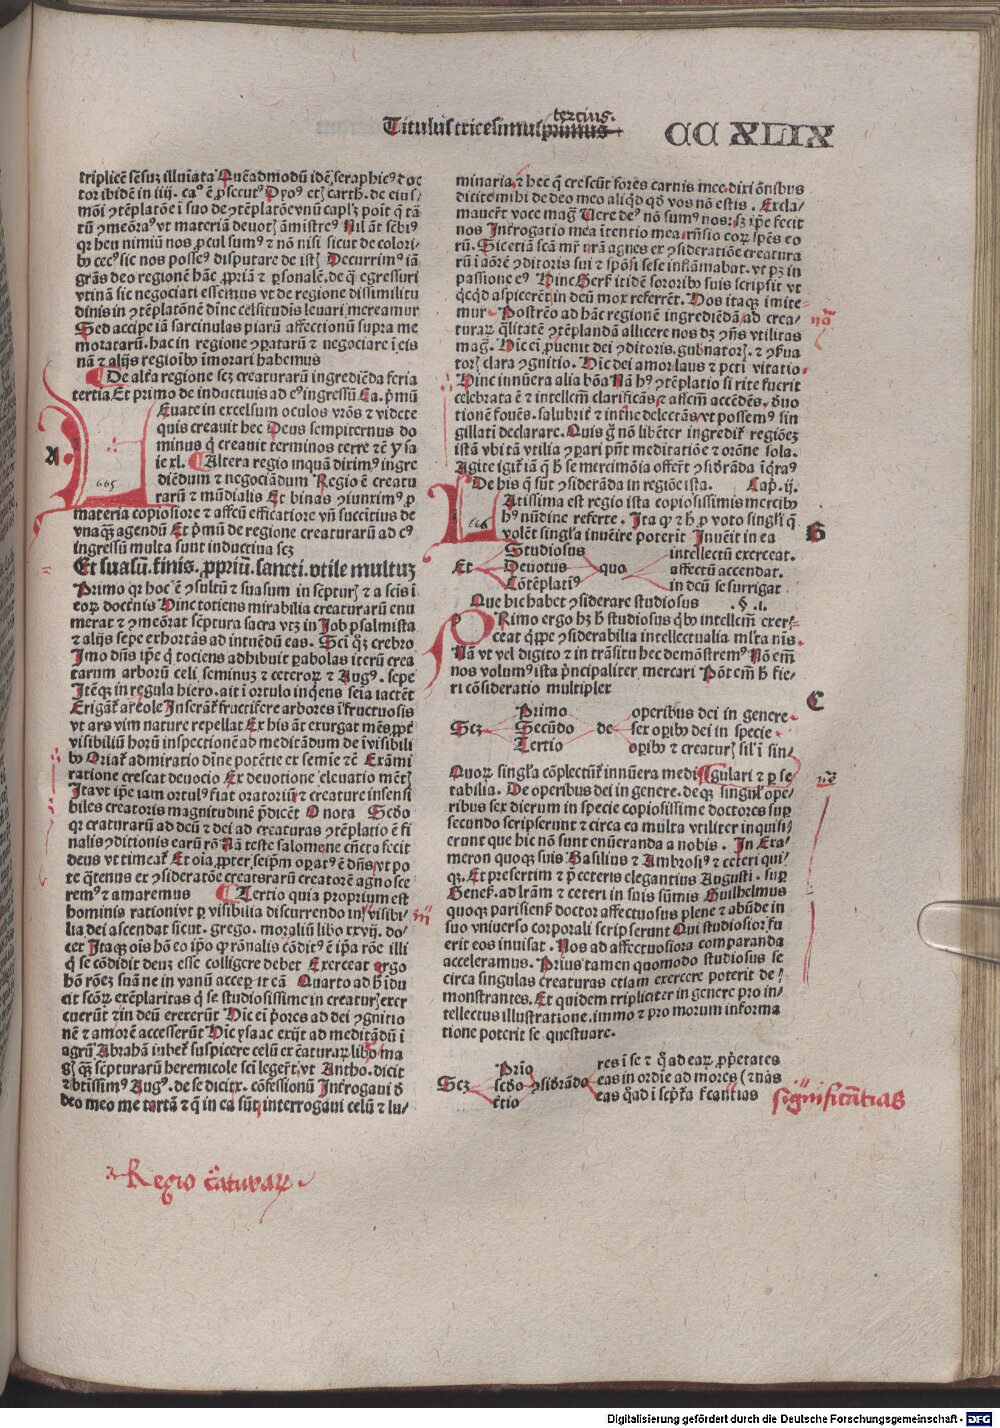 tertius.
Titulus tricesimusprimus
CC XLIX
triplicē sēsuꝫ illuīata Quēadmodū idē seraphicꝰ doc
tor ibidē in iiij. caᵒ ē ꝓsecutꝰ Dyoꝰ etꝫ carth. de eiusᷓ
mōi ꝯtēplatōe ī suo de ꝯtēplatōe vnū capꝉꝫ poīt q̄ tā
tū ꝯmeōraꝰ vt materiā deuotꝫ āmistreꝰ Nil āt sēbiꝰ
qꝛ heu nimiū nos ꝓcul sumꝰ ⁊ nō nisi sicut de colori-
bꝰ cecꝰ sic nos posseꝰ disputare de istꝫ Decurrimꝰ iā
grās deo regionē hāc ꝓpriā ⁊ ꝑsonalē. de q̄ egressuri
vtinā sic negociati essemus vt de regione dissimilitu
dinis in ꝯtēplatōnē dīne celsitudīs leuari mereamur
Sed accipe iā sarcinulas piarū affectionū supra me
moratarū. hac in regione ꝯparatarū ⁊ negociare ī eis
nā ⁊ alijs regioībꝰ īmorari habemus
De altꝰa regione scꝫ creaturarū ingrediēda feria
tertia Et primo de inductiuis ad eꝰ ingressū Ca. pᵐū
A
Euate in excelsum oculos vrōs ⁊ videte
quis creauit hec Deus sempiternus do
minus q̄ creauit terminos terre eᷓ ysa
ie xl. Altera regio inquā diximꝰ ingre
diēdum ⁊ negociandum Regio ē creatu
665
rarū ⁊ mūdialis Et binas ꝯiunximꝰ ꝓ
materia copiosiore ⁊ affcū efficatiore vn̄ succītius de
vnaqꝫ agendū Et pᵐū de regione creaturarū ad eꝰ
ingressū multa sunt inductiua scꝫ
Et suasū. finis. ꝓpriū. sancti. vtile multuꝫ
Primo qꝛ hoc ē ꝯsultū ⁊ suasum in scpturꝫ ⁊ a scis ī
eoꝝ docēnis Hinc totiens mirabilia creaturarū enu
merat ⁊ ꝯmeōrat scptura sacra vtꝫ in Job psalmista
⁊ alijs sepe exhortās ad intuēdū eas. Sci qꝫ crebro
Imo dn̄s ip̄e q̄ tociens adhibuit ꝑabolas iterū crea
tarum arborū celi seminuꝫ ⁊ ceteroꝝ ⁊ Augꝰ. sepe
Itēqꝫ in regula hiero. ait ī ortulo inqēns scia iactēt
Erigāt areole Inserāt fructifere arbores īfructuosis
vt ars vim nature repellat Ex his āt exurgat mēs ꝓpt
visibiliū horū inspectionē ad meditādum de īvisibili
bꝰ Oriať admiratio dīne potētie ex semie eᷓ Exāmi
ratione crescat deuocio Ex deuotione eleuatio mētꝫ
Ita vt ip̄e iam ortulꝰ fiat oratoriū ⁊ creature insensi
biles creatoris magnitudinē p̄dicēt O nota Scďo
qꝛ creaturarū ad deū ⁊ dei ad creaturas ꝯtēplatio ē fi
nalis ꝯditionis earū rō Nā teste salomone cūcta fecit
deus vt timeať Et oīa ꝓpter seipm̄ opatꝰ ē dn̄s vt po
te q̄tenus ex ꝯsideratōe creatsrarū creatorē agnosce
remꝰ ⁊ amaremus Tertio quia proprium est
hominis rationi vt ꝑ visibilia discurrendo in visibi-
lia dei ascendat sicut. grego. moraliū libo xxvij. do-
cet Itaqꝫ oīs hō eo ip̄o qꝛ rōnalis cōditꝰ ē ip̄a rōe illi
q̄ se cōdidit deuꝫ esse colligere debet Exerceat ergo
hō rōeꝫ suā ne in vanū acceꝑit eā Quarto ad h̄ idu
cit scōꝝ exēplaritas q̄ se studiosissime in creaturꝫ exer
cuerūt ⁊ in deū erexerūt Dic ei p̄ores ad dei ꝯgnitio
nē ⁊ amorē accesserūt Dic ysaac exijt ad meditādū ī
agrū Abrahā iubeť suspicere celū ex eātuaꝝ libo ma
gꝫ qꝫ scpturarū heremicole sci legeřt vt Antho. dicit
⁊ btissimꝰ Augꝰ. de se dicitꝛ. cōfessionū Inřrogaui ď
deo meo me tartā ⁊ q̄ in ea sūt interrogaui celū ⁊ lu-
m̄
minaria ⁊ hec q̄ crescūt fores carnis mee dixi ōnībus
dicite mihi de deo meo aliqd qď vos nō estis. Excla-
mauerť voce mag̃ Uere deꝰ nō sumꝰ nos: sꝫ ip̄e fecit
nos Inřrogatio mea ītentio mea rn̄sio coꝝ spēs eo
rū. Sic etiā scā mr̃ nrā agnes ex ꝯsideratiōe creatura
rū ī aōrē ꝯditoris sui ⁊ spōsi sese inflāmabat. vt pꝫ in
passione eꝰ Hinc Gerẜ itidē sororibꝰ suis scripsit vt
qcqd aspicerēt in deū mox referrēt. Hos itaqꝫ imite-
mur Postrēo ad hāc regionē ingrediēdā ad crea-
nā
turaꝝ q̄litatē ꝯtēplandā allicere nos dꝫ ꝯn̄s vtilitas
mag̃. Dic ei ꝓuenit dei ꝯditoris. gub̄natorꝫ. ⁊ ꝯẜua
torꝫ clara ꝯgnitio. Dic dei amor laus ⁊ pcti vitatio-
Hinc innūera alia bōa Nā hꝰ ꝯtēplatio si rite fuerit
celebrata ē ⁊ intellcm̄ clarificās ⁊ affcm̄ accēdēs. ďuo
tionē fouēs. salubriť ⁊ intꝰne delectās vt possemꝰ sin
gillatī declarare. Quis gᵒ nō libēter ingrediť regiōeꝫ
istā vbi tā vtilia ꝯꝑari pn̄t meditatiōe ⁊ orōne sola.
Agite igiť iā q̄ h̄ se mercimōia offerť ꝯsiďrāda īqraꝰ
De his q̄ sūt ꝯsiderāda in regiōe ista. Cap. ij.
Atissima est regio ista copiosissimis mercibꝰ
666
hꝰ nūdine referte. Ita qꝛ ⁊ h̄ ꝓ voto singlī q̄
B
volēt singla inuēire poterit Inuēit in ea
Studiosus intellectū exerceat.
Et Deuotus quo affectū accendat.
Cōtēplatiꝰ in deū se surrigat
Que hic habet ꝯsiderare studiosus . §. i.
p Rimo ergo hꝫ h̄ studiosus qbꝰ intellcm̄ exer-
ceat qꝓpe ꝯsiderabilia intellectualia mltā nis
Nā vt vel digito ⁊ in trāsitu hec demōstremꝰ Nō em̄
nos volumꝰ ista pⁱncipaliter mercari Pōt em̄ h̄ fie-
ri cōsideratio multiplex
C
Primo operibus dei in genere
Scꝫ Secūdo de sex oꝑibꝰ dei in specie
Tertio oꝑibꝰ ⁊ creaturꝫ sil̄ ī sin-
Quoꝝ singla cōplectūť innūera medi gulari ⁊ ꝑ se
nō
tabilia. De operibus dei in genere. deqꝫ singulꝭ ope-
ribus sex dierum in specie copiosissime doctores suꝑ
secundo scripserunt ⁊ circa ea multa vtiliter inquisi-
erunt que hic nō sunt enūeranda a nobis. In Exa-
meron quoqꝫ suis Basilius ⁊ Ambrosiꝰ ⁊ ceteri qui-
qꝫ. Et presertim ⁊ p̄ ceteris elegantius Augusti. suꝑ
Geneẜ. ad lrām ⁊ ceteri in sais sūmis Guilhelmus
quoqꝫ parisienẜ doctor affectuosus plene ⁊ abūde in
suo vniuerso corporali scripserunt Qui studiosior fu
erit eos inuisat. Nos ad affectuosiora comparanda
acceleramus. Prius tamen quomodo studiosus se
circa singulas creaturas etiam exercere poterit de-
monstrantes. Et quidem tripliciter in genere pro in-
tellectus illustratione. immo ⁊ pro morum informa
tione poterit se questuare.
Prio res ī se ⁊ q̄ ad eaꝝ ꝓp̄etates
Scꝫ scďo ꝯsiďrādo eas in ordīe ad mores (⁊nās
ťtio eas q̄ad ī scpťa řcantias
significātias
Regio cͬaturaꝝ
Digitalisierung gefördert durch die Deutsche Forschungsgemeinschaft - DFG